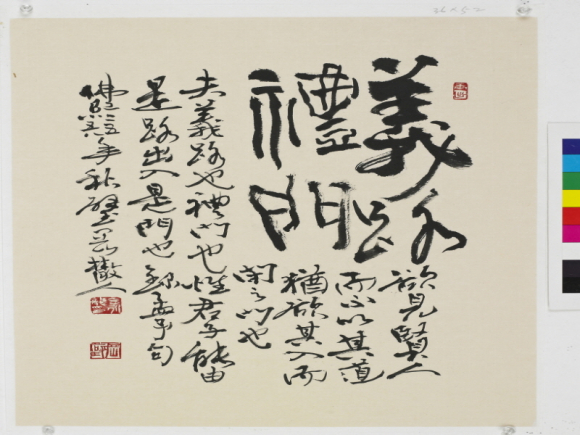 義路
禮門
欲見賢人
而不以其道
猶欲其入而
閉之門也
夫義路也禮門也惟君子能由
是路出入是門也 錄孟子句